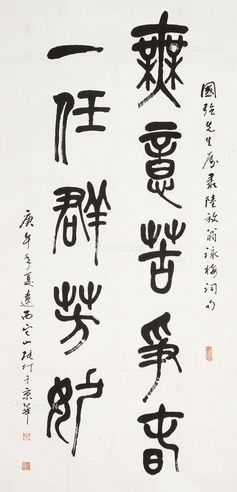 國強先生屬書陸放翁詠梅詞句
無意苦爭春
一任群芳妒
庚午年夏遼西
山
於京華